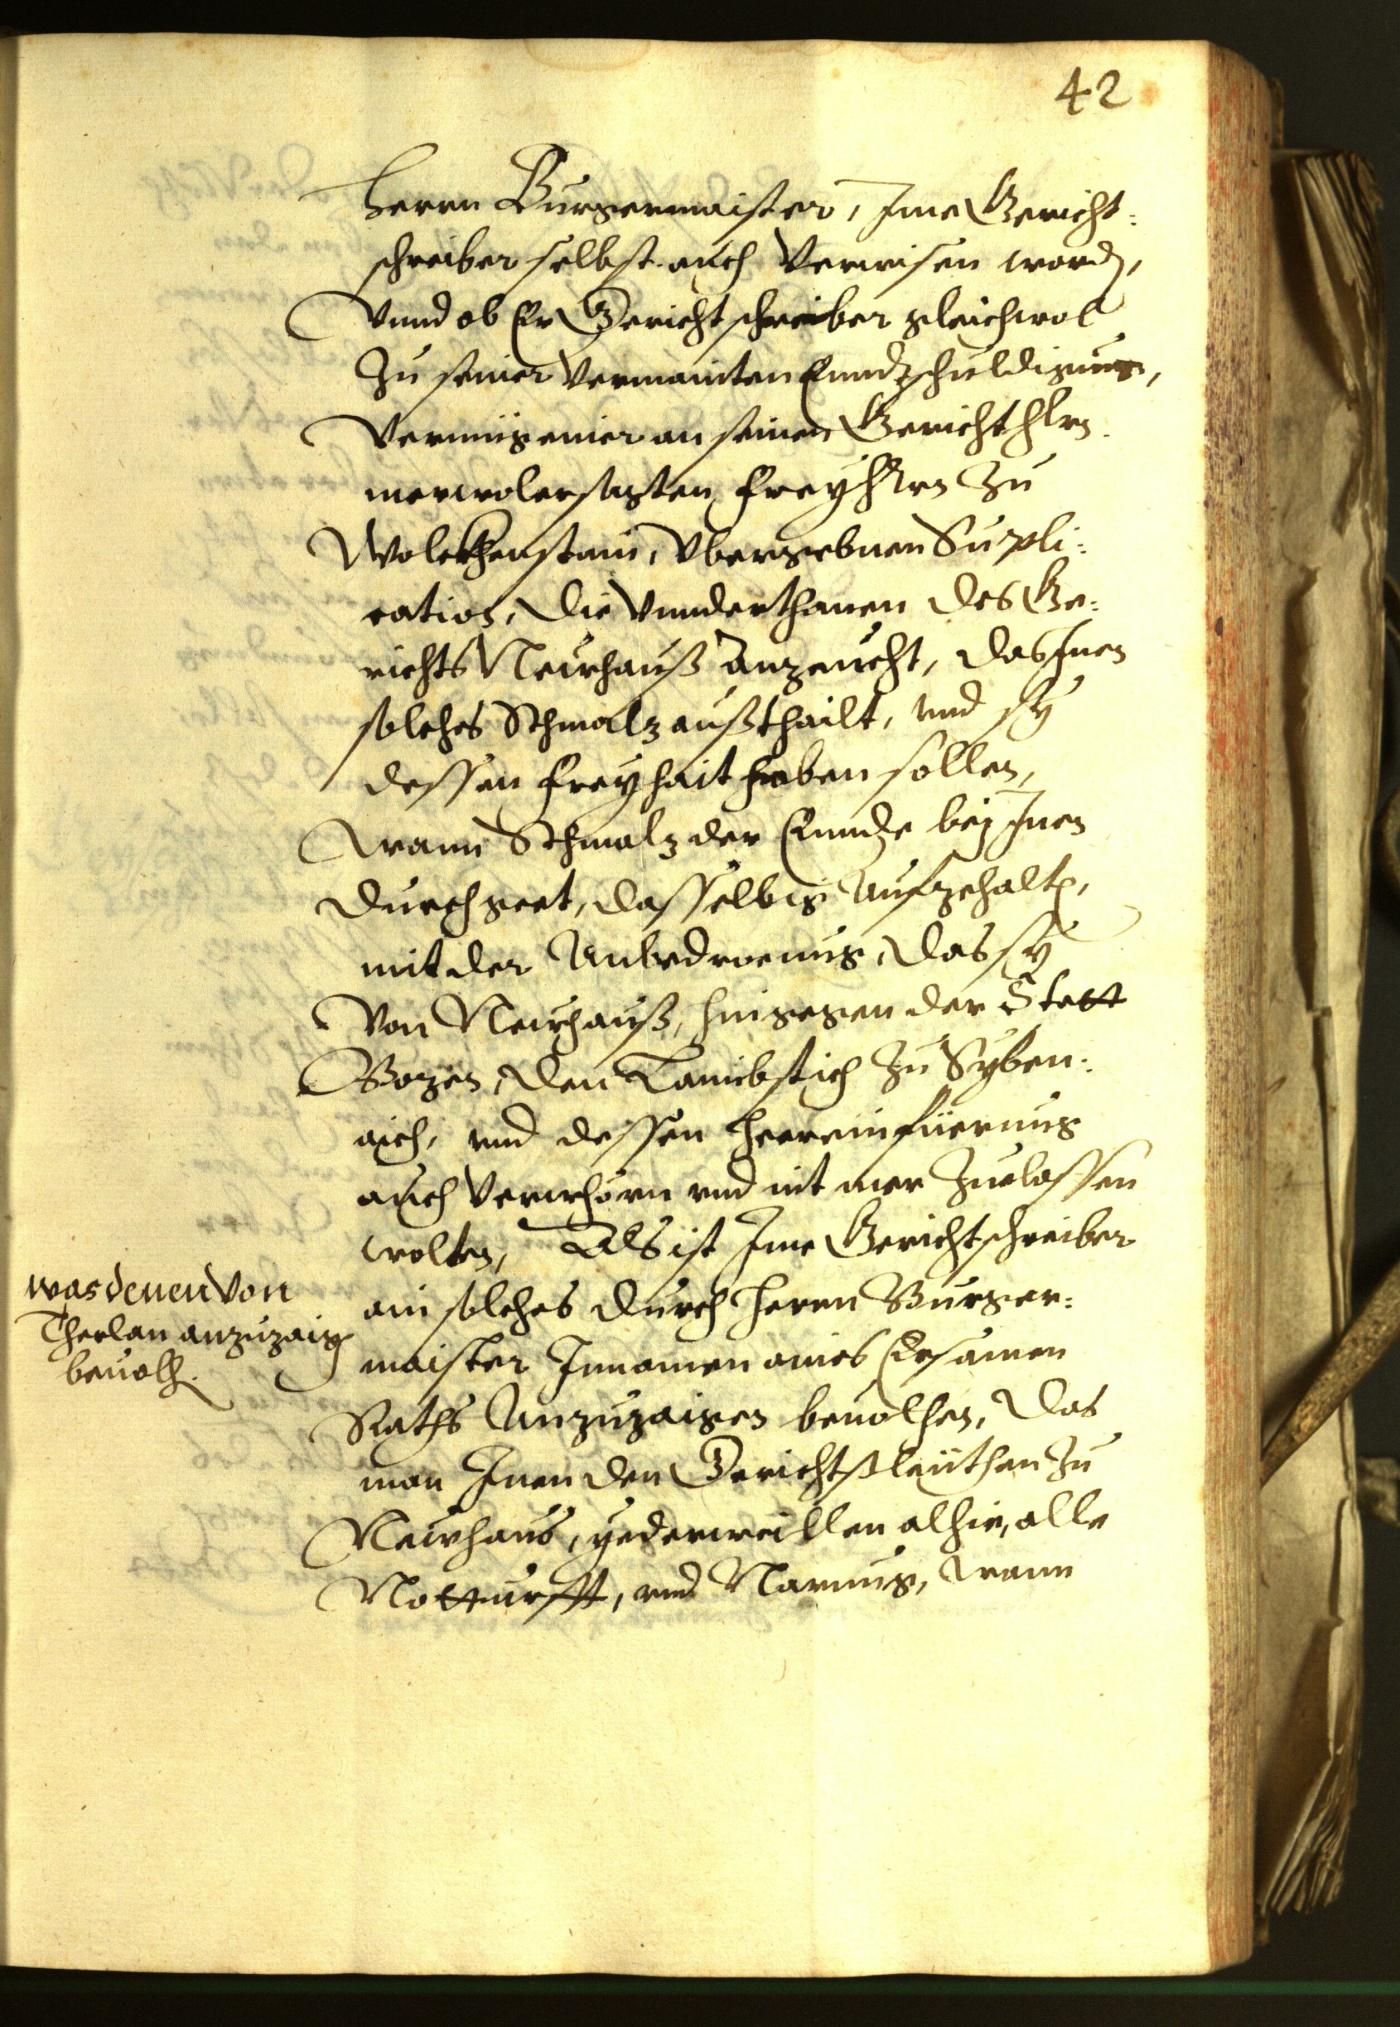 42
Herrn Burgermaister, Ime Gericht-
schreiber selbst auch verwisen word,
Vnnd ob Er Gerichtschreiber gleichwol
Zu seiner vermainten Enndtschuldigung,
Vermüg einer an seinen Gerichtshern
merwolersagten Freyhern zu
Wolckhenstain, vbergebnen Supli:
cation, die vnnderthanen des Ge:
richts Neuhauß anzeucht, das Inen
solches Schmalz außthailt, vnd sy
dessen freyhait haben sollen,
wann Schmalz der Ennde bey Inen
durchgeet, dasselbig aufzehalten,
mit der Anbedroeung, das sy
von Neuhauß, hingegen der Statt
Bozen, den Lambstich zu Syben:
aich, vnd dessen heereinfüerung
auch verwhörn vnd nit mer zuelassen
wolten, Als ist Ime Gerichtschreiber
ain solches durch herrn Burger:
maister Innamen aines Ersamen
Raths Anzuzaigen beuolhen, das
man Inen den Gerichtsleüthen zu
Neuhaus, yederweillen alhie, alle
Notturfft, vnd Narung, wann
was denen von
Therlan anzuzaigen
beuolh.